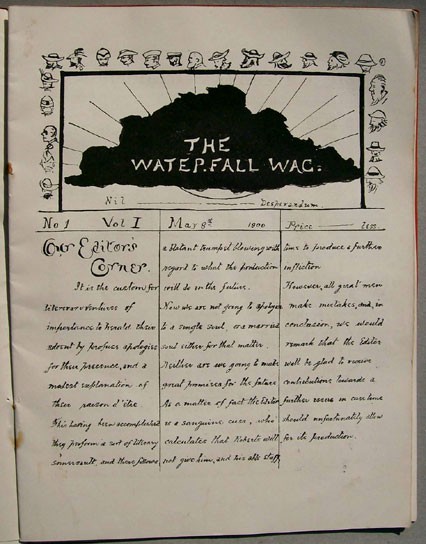 THE
WATERFALL WAG.
Nil Desperandum.
No 1 Vol I Mar 8th 1900 Price
Our Editor's
Corner.
It is the custom for
literary ventures of
importance to herald their
advent by profuse apologies
for their presence, and a
modest explanation of
their raison d'être
This having been accomplished
they perform a sort of literary
somersault, and there follows
a blatant trumpet blowing with
regard to what the production
will do in the future.
Now we are not going to apologise
to a single soul, or a married
soul either for that matter.
Neither are we going to make
great promises for the future
As a matter of fact the Editor
is a sanguine cuss, who
calculates that Roberts will
not give him, and his able staff,
time to produce a further
infliction
However, all great men
make mistakes, and, in
conclusion, we would
remark that the Editor
will be glad to receive
contributions towards a
further issue in case time
should unfortunately allow
for its production.